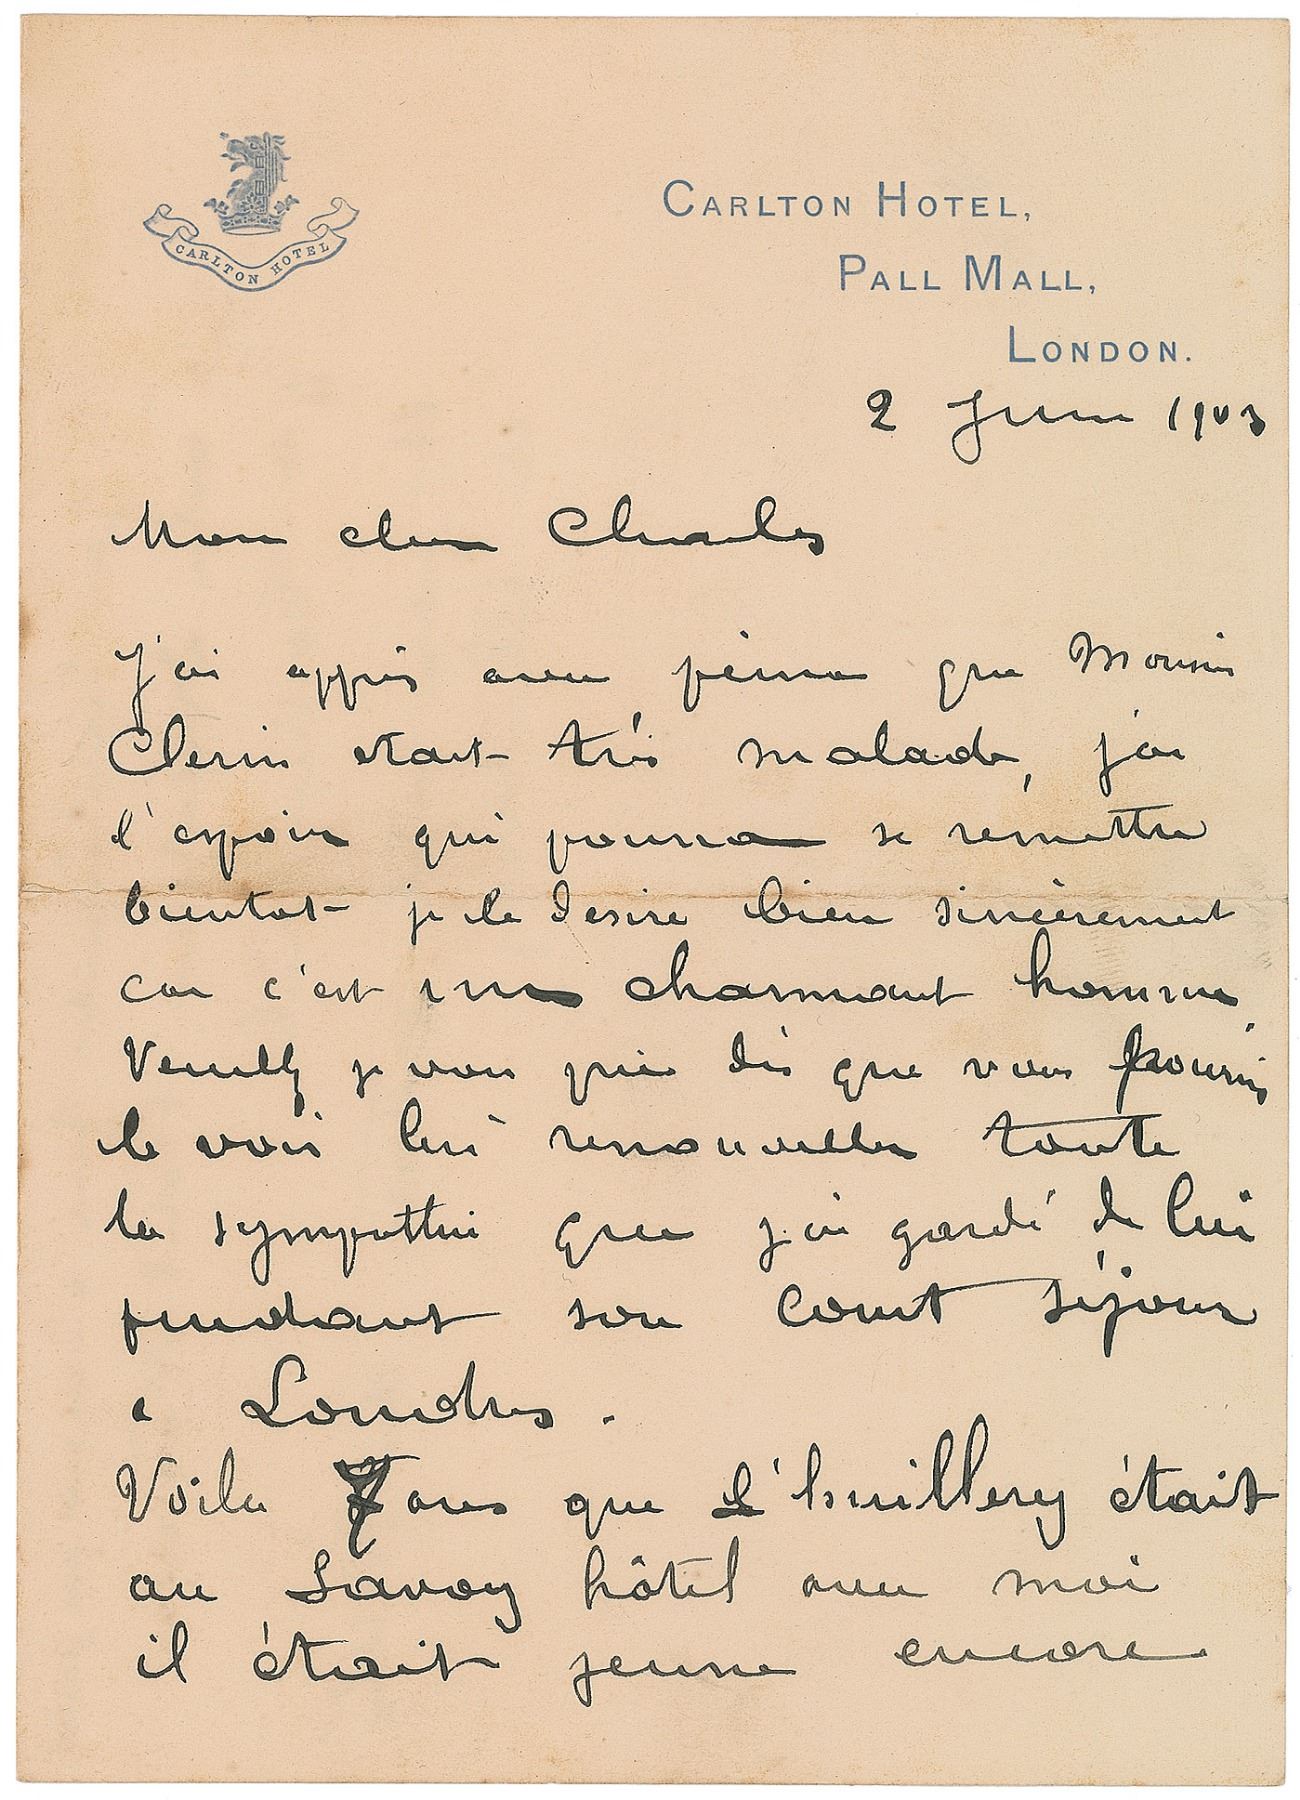 CARLTON HOTEL
CARLTON HOTEL,
PALL MALL,
LONDON.
2 Juin 1903
Mon cher Charles
J'ai appris avec peine que Monsieur
Clerin etait très malade, j'ai
l'espoir qui pourra se remettre
bientot je le desire bien sincèrement
car c'est un charmant homme.
Veuillez je vous prie dès que vous pourrez
le voir lui renouveller toute
la sympathie que j'ai gardé de lui
pendant son court séjour
a Londres.
Voila 7 ans que l'huillery était
au Savoy hôtel avec moi
il était jeune encore